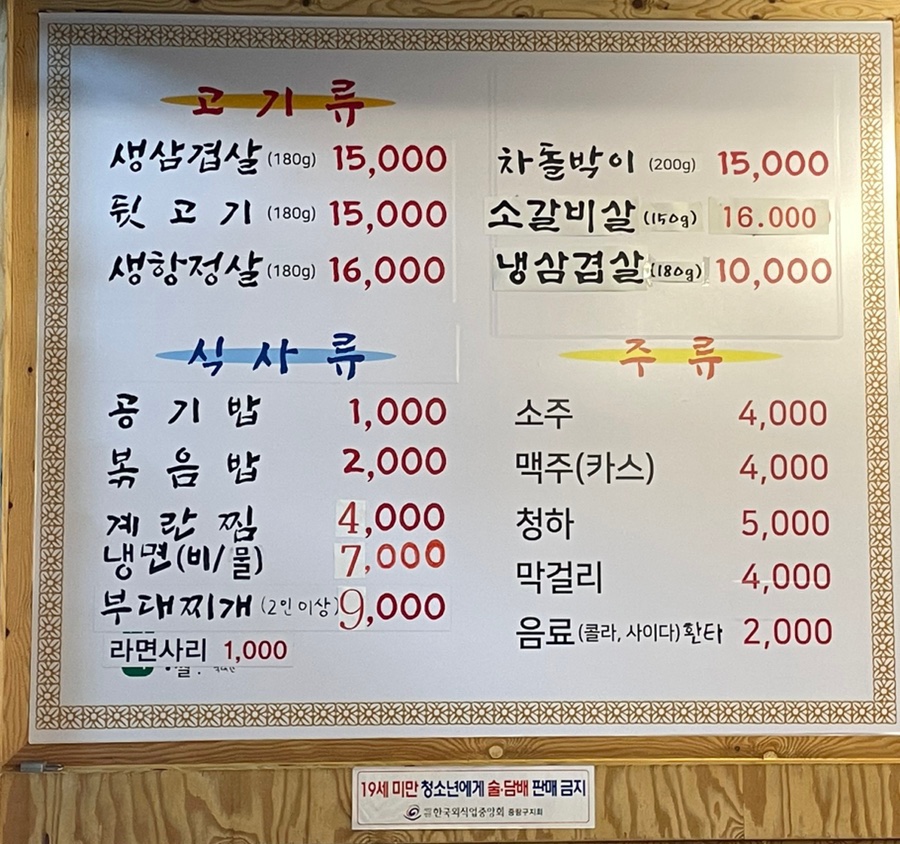 고기류
생삼겹살(180g) 15,000
뒷고기(180g) 15,000
생항정살(180g) 16,000
차돌박이 (200g) 15,000
소갈비살(150g) 16.000
냉삼겹살(180g) 10,000
식사류
공기밥 1,000
볶음밥 2,000
계란찜 4,000
냉면(비/물) 7,000
부대찌개(2인이상) 9,000
라면사리 1,000
주류
소주 4,000
맥주(카스) 4,000
청하 5,000
막걸리 4,000
음료(콜라, 사이다)환타 2,000
19세 미만 청소년에게 술·담배 판매 금지
한국외식업중앙회 중랑구지회